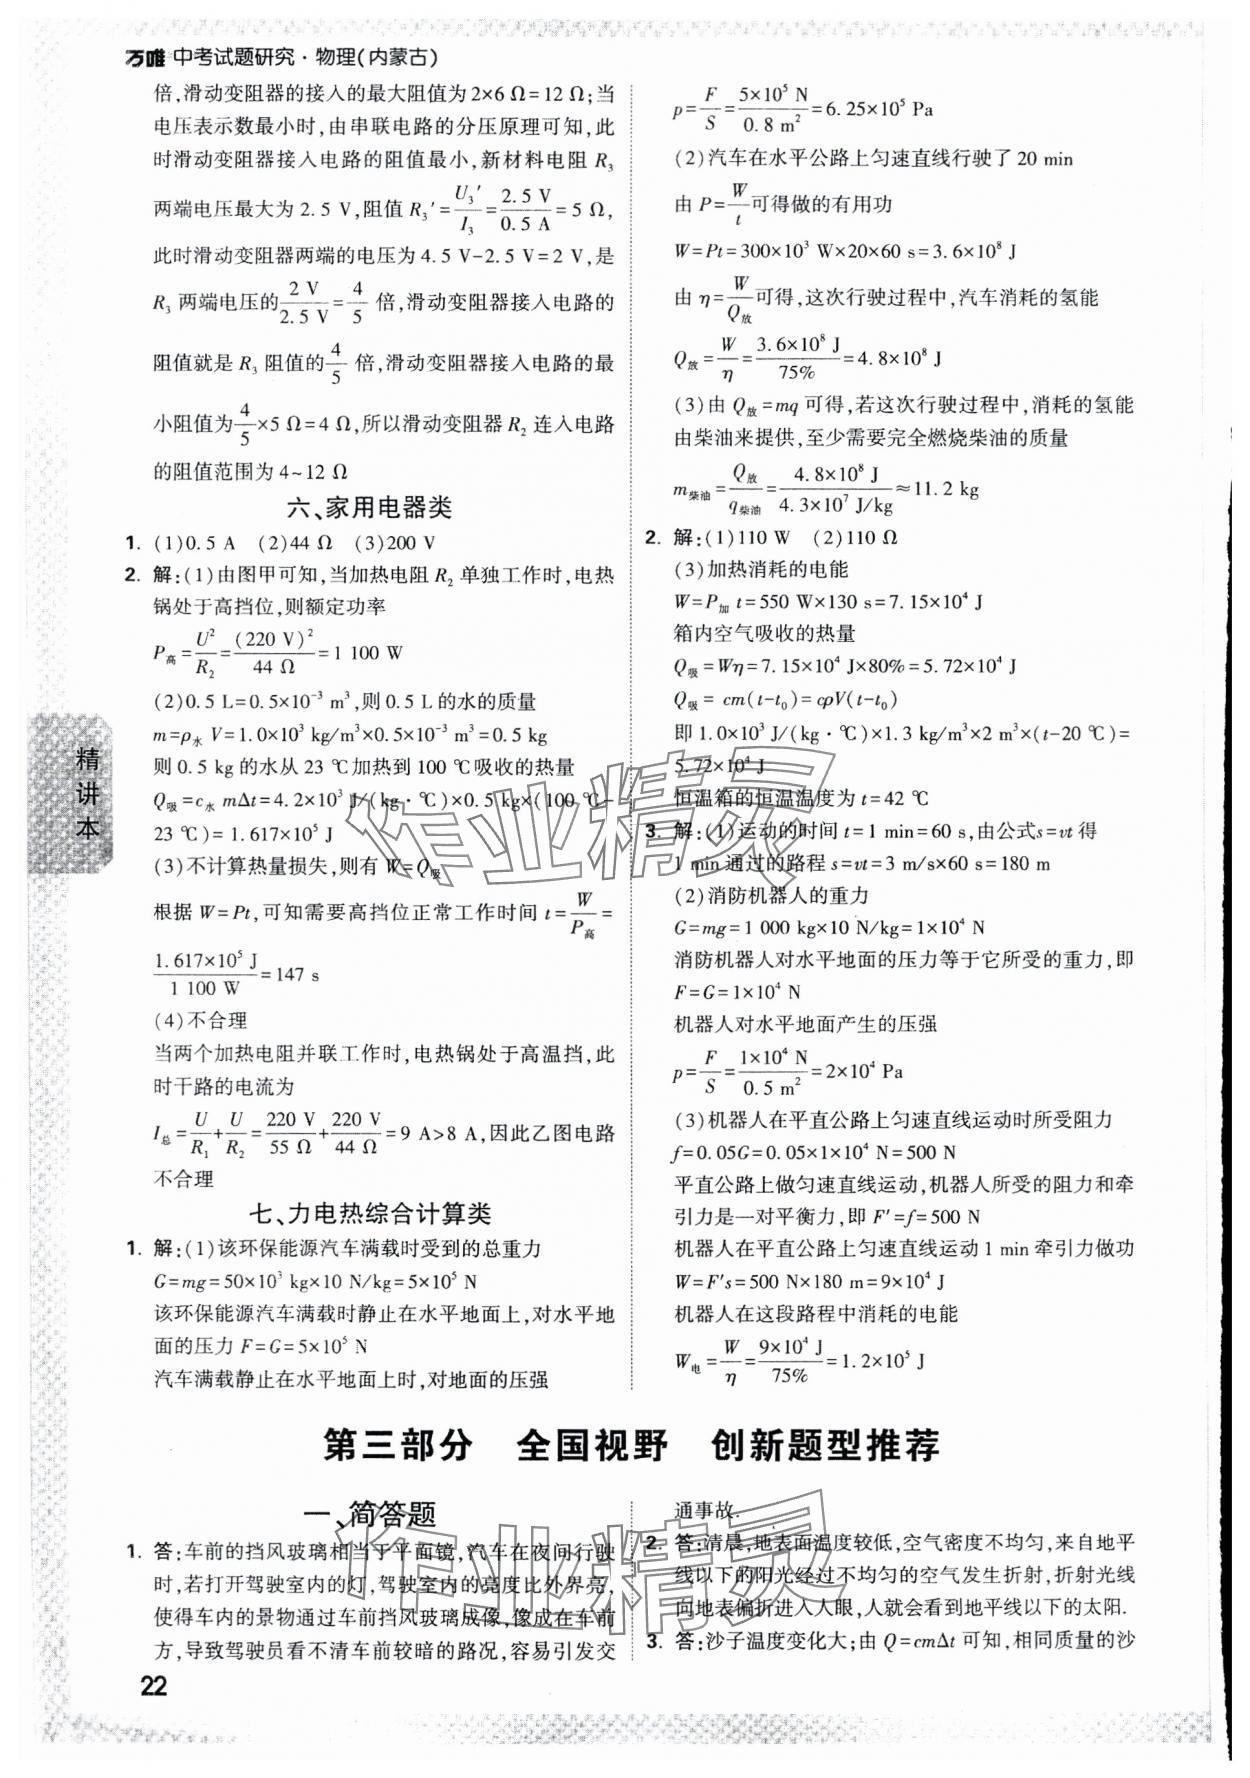 万唯 中考试题研究·物理(内蒙古)
倍,滑动变阻器的接入的最大阻值为2×6 Ω=12 Ω;当
电压表示数最小时,由串联电路的分压原理可知,此
时滑动变阻器接入电路的阻值最小,新材料电阻 R₃
两端电压最大为 2.5 V,阻值 R₃′=U₃′/I₃=2.5 V/0.5 A=5 Ω,
此时滑动变阻器两端的电压为 4.5 V-2.5 V=2 V,是
R₃ 两端电压的2 V/2.5 V=4/5 倍,滑动变阻器接入电路的
阻值就是 R₃ 阻值的4/5 倍,滑动变阻器接入电路的最
小阻值为4/5×5 Ω=4 Ω,所以滑动变阻器 R₂ 连入电路
的阻值范围为 4~12 Ω
六、家用电器类
1. (1)0.5 A (2)44 Ω (3)200 V
2. 解:(1)由图甲可知,当加热电阻 R₂ 单独工作时,电热
锅处于高挡位,则额定功率
P高=U²/R₂=(220 V)²/44 Ω=1 100 W
(2)0.5 L=0.5×10⁻³ m³,则 0.5 L 的水的质量
m=ρ水 V=1.0×10³ kg/m³×0.5×10⁻³ m³=0.5 kg
则 0.5 kg 的水从 23 ℃加热到 100 ℃吸收的热量
Q吸=c水 mΔt=4.2×10³ J/(kg·℃)×0.5 kg×(100 ℃-
23 ℃)=1.617×10⁵ J
(3)不计算热量损失,则有 W=Q吸
根据 W=Pt,可知需要高挡位正常工作时间 t=W/P高=
1.617×10⁵ J/1 100 W=147 s
(4)不合理
当两个加热电阻并联工作时,电热锅处于高温挡,此
时干路的电流为
I总=U/R₁+U/R₂=220 V/55 Ω+220 V/44 Ω=9 A>8 A,因此乙图电路
不合理
七、力电热综合计算类
1. 解:(1)该环保能源汽车满载时受到的总重力
G=mg=50×10³ kg×10 N/kg=5×10⁵ N
该环保能源汽车满载时静止在水平地面上,对水平地
面的压力 F=G=5×10⁵ N
汽车满载静止在水平地面上时,对地面的压强
p=F/S=5×10⁵ N/0.8 m²=6.25×10⁵ Pa
(2)汽车在水平公路上匀速直线行驶了 20 min
由 P=W/t可得做的有用功
W=Pt=300×10³ W×20×60 s=3.6×10⁸ J
由 η=W/Q放可得,这次行驶过程中,汽车消耗的氢能
Q放=W/η=3.6×10⁸ J/75%=4.8×10⁸ J
(3)由 Q放=mq 可得,若这次行驶过程中,消耗的氢能
由柴油来提供,至少需要完全燃烧柴油的质量
m柴油=Q放/q柴油=4.8×10⁸ J/4.3×10⁷ J/kg≈11.2 kg
2. 解:(1)110 W (2)110 Ω
(3)加热消耗的电能
W=P加 t=550 W×130 s=7.15×10⁴ J
箱内空气吸收的热量
Q吸=Wη=7.15×10⁴ J×80%=5.72×10⁴ J
Q吸= cm(t-t₀)=cρV(t-t₀)
即 1.0×10³ J/(kg·℃)×1.3 kg/m³×2 m³×(t-20 ℃)=
5.72×10⁴ J
恒温箱的恒温温度为 t=42 ℃
3. 解:(1)运动的时间 t=1 min=60 s,由公式s=vt 得
1 min 通过的路程 s=vt=3 m/s×60 s=180 m
(2)消防机器人的重力
G=mg=1 000 kg×10 N/kg=1×10⁴ N
消防机器人对水平地面的压力等于它所受的重力,即
F=G=1×10⁴ N
机器人对水平地面产生的压强
p=F/S=1×10⁴ N/0.5 m²=2×10⁴ Pa
(3)机器人在平直公路上匀速直线运动时所受阻力
f=0.05G=0.05×1×10⁴ N=500 N
平直公路上做匀速直线运动,机器人所受的阻力和牵
引力是一对平衡力,即 F′=f=500 N
机器人在平直公路上匀速直线运动 1 min 牵引力做功
W=F′s=500 N×180 m=9×10⁴ J
机器人在这段路程中消耗的电能
W电=W/η=9×10⁴ J/75%=1.2×10⁵ J
精讲本
第三部分 全国视野 创新题型推荐
一、简答题
1. 答:车前的挡风玻璃相当于平面镜,汽车在夜间行驶
时,若打开驾驶室内的灯,驾驶室内的亮度比外界亮,
使得车内的景物通过车前挡风玻璃成像,像成在车前
方,导致驾驶员看不清车前较暗的路况,容易引发交
通事故.
2. 答:清晨,地表面温度较低,空气密度不均匀,来自地平
线以下的阳光经过不均匀的空气发生折射,折射光线
向地表偏折进入人眼,人就会看到地平线以下的太阳.
3. 答:沙子温度变化大;由 Q=cmΔt 可知,相同质量的沙
22
作业精灵
作业精灵